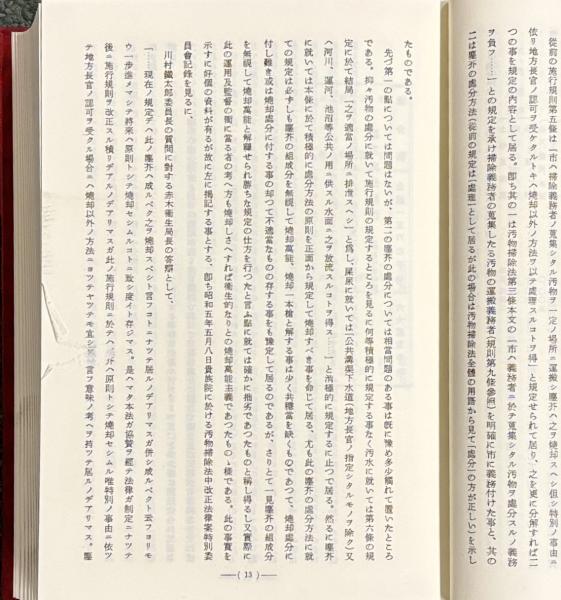 從前の施行規則第五條は「市ハ掃除義務者ノ蒐集シタル汚物ヲ一定ノ場所ニ運搬シ塵芥ハ之ヲ燒却スヘシ但シ特別ノ事由ニ
依リ地方長官ノ認可ヲ受ケタルトキハ燒却以外ノ方法ヲ以テ處理スルコトヲ得」と規定せられて居り、之を更に分解すれば二
つの事を規定の内容として居る。即ち其の一は汚物掃除法第三條本文の「市ハ義務者ニ於テ蒐集シタル汚物ヲ處分スルノ義務
ヲ負フ……」との規定を承け掃除義務者の蒐集したる汚物の運搬義務者(規則第九條參照)を明確に市に義務付けた事と、其の
二は塵芥の處分方法(從前の規定は「處理」として居るが此の場合は汚物掃除法全體の用語から見て「處分」の方が正しい)を示し
たものである。
先づ第一の點については問題はないが、第二の塵芥の處分については相當問題のある事は既に豫め多少觸れて置いたところ
である。抑々汚物の處分に就いて施行規則の規定するところを見るに何等積極的に規定する事なく汚水に就いては第六條の規
定に於て結局「之ヲ適當ノ場所ニ排泄スヘシ」と爲し、屎尿に就いては「公共溝渠下水道(地方長官ノ指定シタルモノヲ除ク)又
ハ河川、運河、池沼等公共ノ用ニ供スル水面ニ之ヲ放流スルコトヲ得ス……」と消極的に規定するに止つて居る。然るに塵芥
に就いては本條に於て積極的に處分方法の原則を正面から規定して燒却すべき事を命じて居る。尤も此の塵芥の處分方法に就
ての規定は必ずしも塵芥の組成分を無視して燒却萬能、燒却一本槍と解する事は少く共穩當を缺くものであつて、燒却處分に
付し難き或は燒却處分に付する事の却つて不適當なものの存する事をも豫定して居るのであるが、さりとて一見塵芥の組成分
を無視して燒却萬能と解釋せられ勝ちな規定の仕方を行つたと言ふ點に就ては確かに拙劣であつたものと稱し得るし又實際に
此の運用及監督の衝に當る者の考へ方も燒却しさへすれば衞生的なりとの燒却萬能主義であつたものゝ樣である。此の事實を
示すに好個の資料が有るが故に左に揭記する事とする、即ち昭和五年五月八日貴族院に於ける汚物掃除法中改正法律案特別委
員會記錄を見るに、
川村鐵太郎委員長の質問に對する赤木衞生局長の答辯として、
「……現在ノ規定デハ此ノ塵芥ハ成ルベク之ヲ燒却スベシト言フコトニナツテ居ルノデアリマスガ併シ成ルベクト云フヨリモ
ウ一步進メマシテ將來ハ原則トシテ燒却セシムルコトニ致シ度イト存ジマス。是ハマタ本法ガ協贊ヲ經テ法律ガ制定ニナツテ
後ニ施行規則ヲ改正スル積リデアルノデアリマスガ此ノ施行規則ニ於テハ、 ハ原則トシテ燒却セシムル唯特別ノ事由ニ依ツ
テ地方長官ノ認可ヲ受クル場合ニハ燒却以外ノ方法ニヨツテヤツテモ宜シ 言フ意味ノ考ヘヲ持ツテ居ルノデアリマス。塵
―( 13 )―